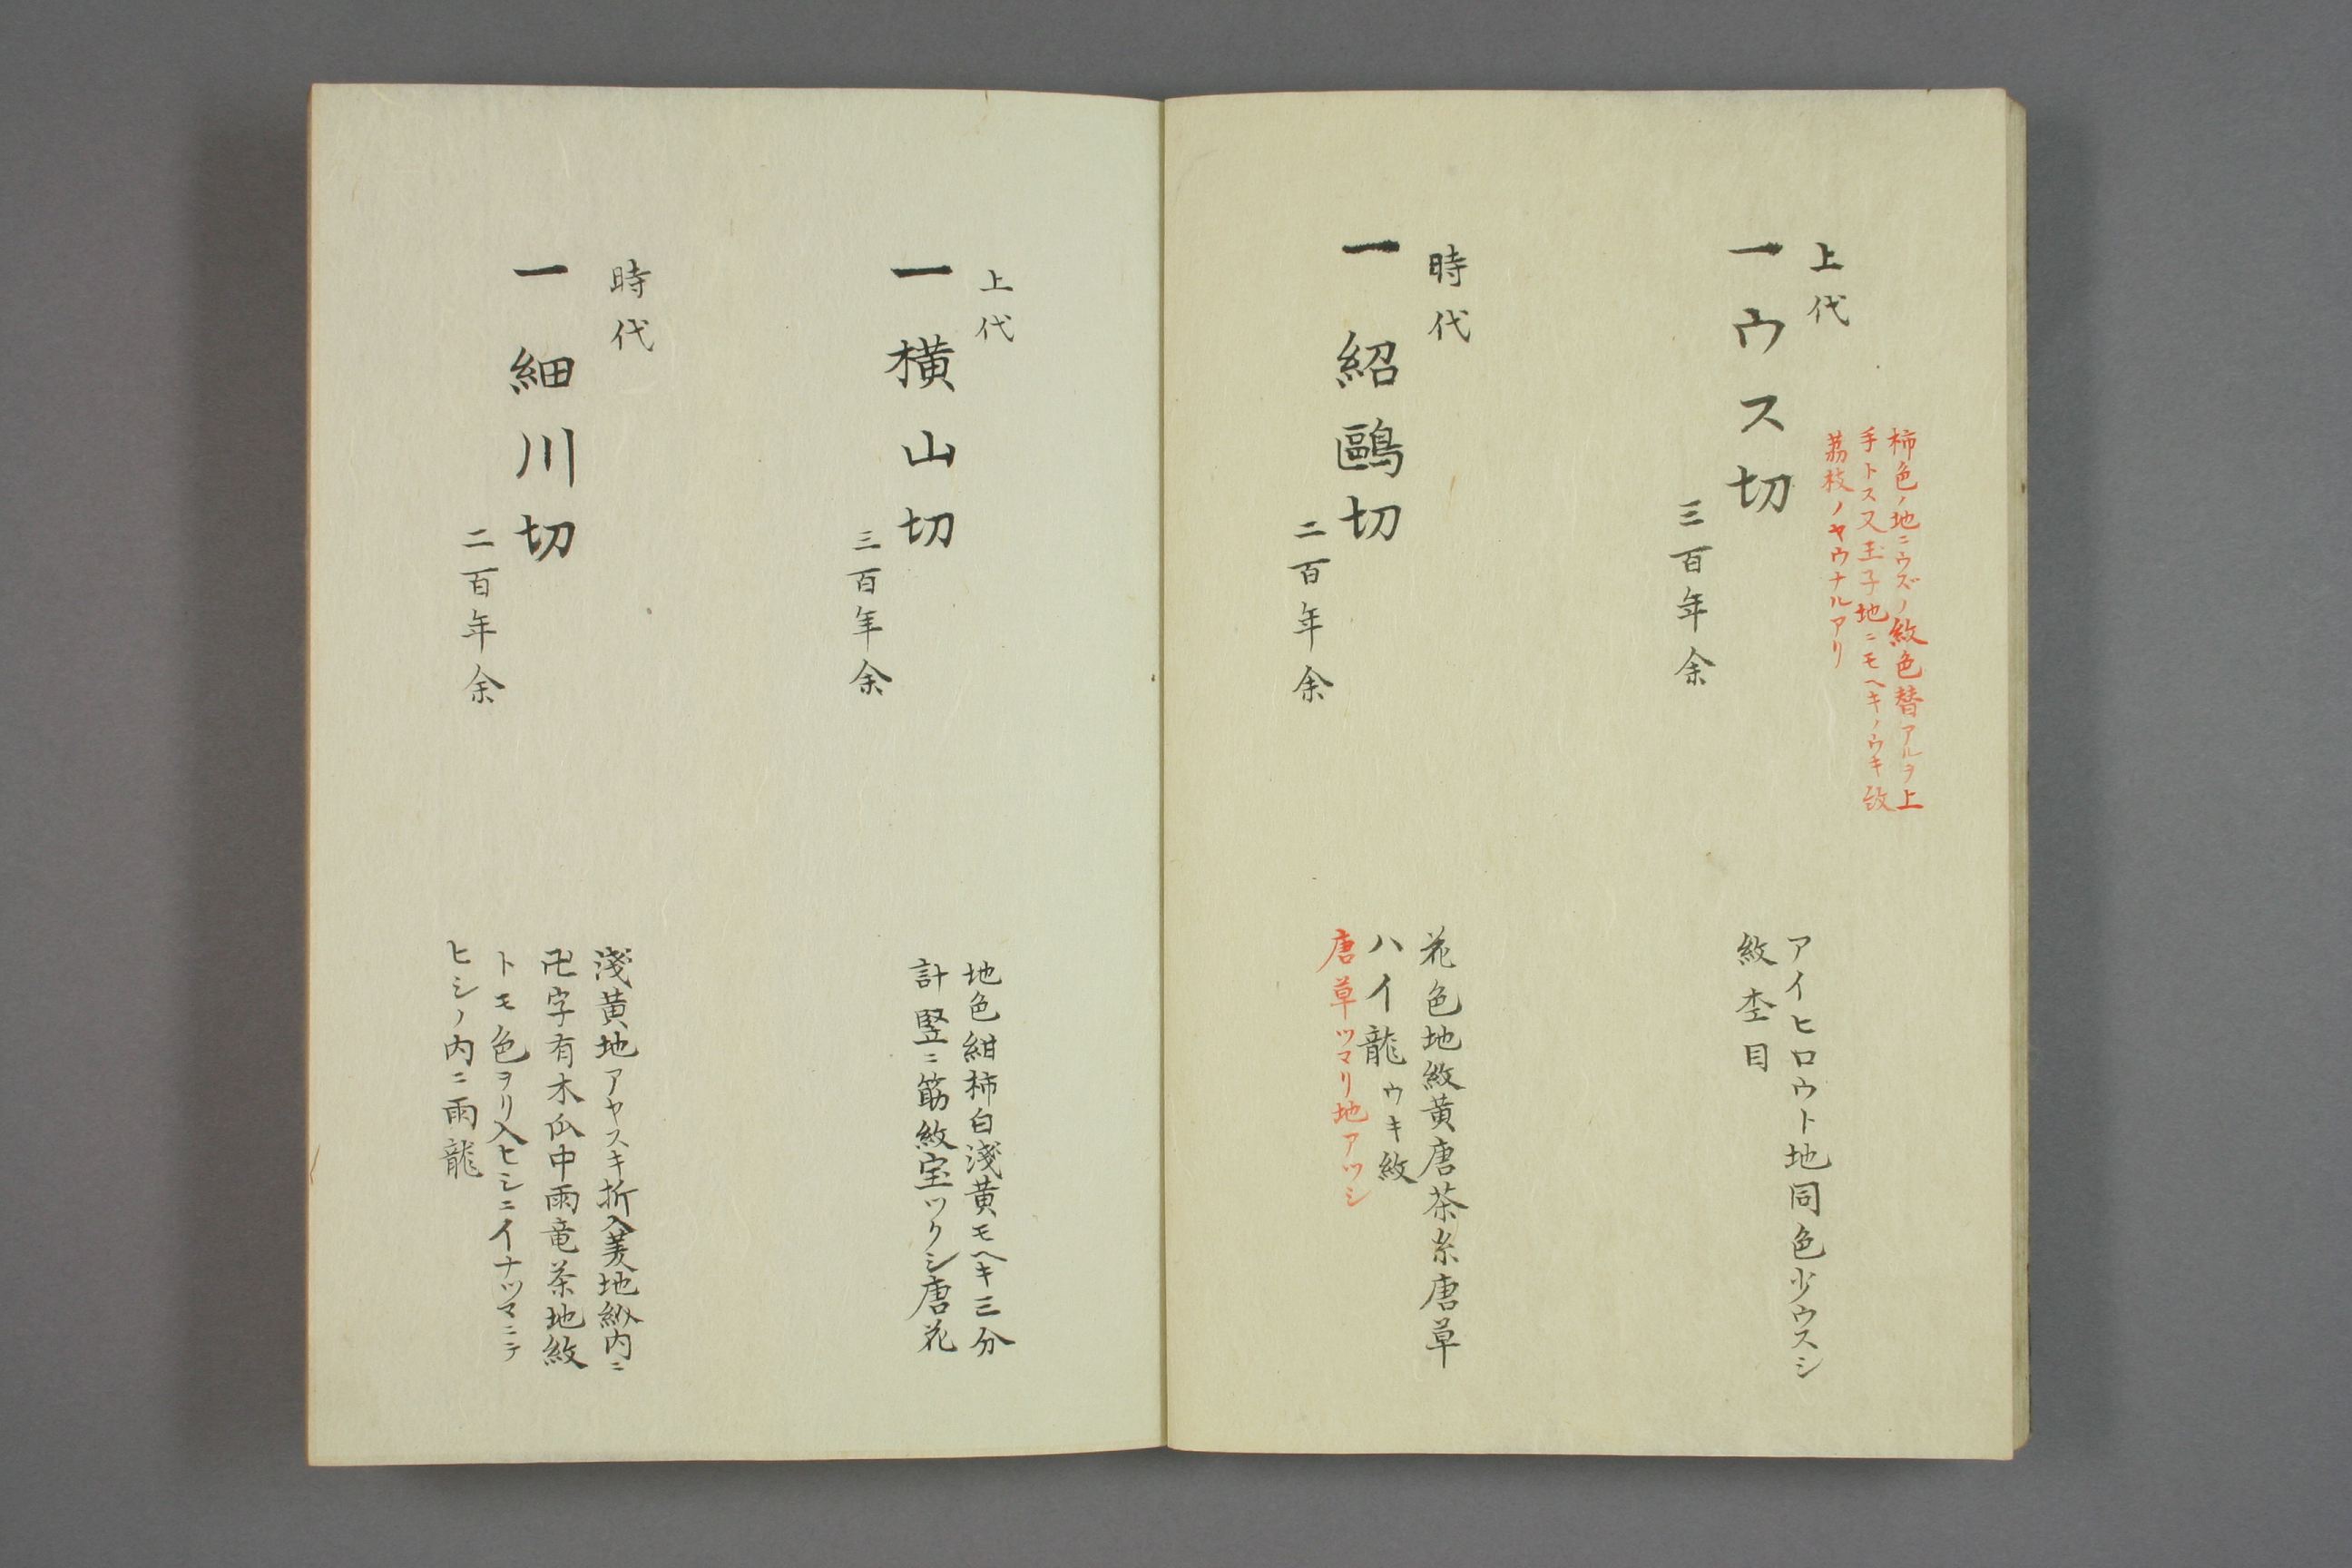 柿色ノ地ニウズノ紋色替アルヲ上
手トス又玉子地ニモヘキノウキ紋
茘枝ノヤウナルアリ
上代
一ウス切
三百年余
アイヒロウト地同色少ウスシ
紋杢目
時代
一紹鷗切
二百年余
花色地紋黄唐茶糸唐草
ハイ龍ウキ紋
唐草ツマリ地アツシ
上代
一横山切
三百年余
地色紺柿白淺黄モヘキ三分
計竪ニ筋紋宝ツクシ唐花
時代
一細川切
二百年余
淺黄地アヤスキ折入美地紋内ニ
卍字有木瓜中雨竜茶地紋
トモ色ヲリ入ヒシニイナツマニテ
ヒシノ内ニ雨龍